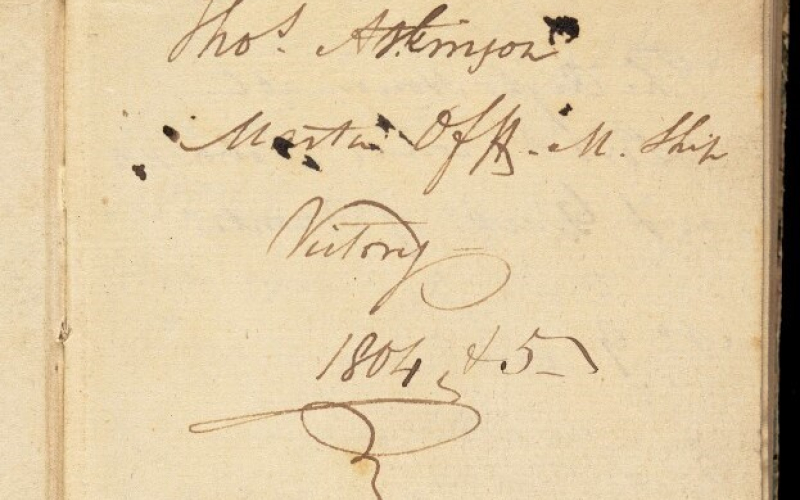 Thos. Atkinson
Master Of H. M. Ship
Victory
1804, & 5